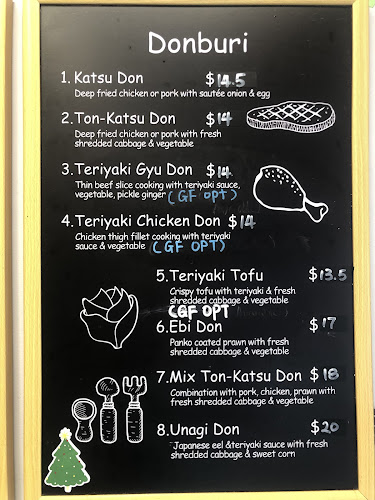 Donburi
1. Katsu Don $14.5
Deep fried chicken or pork with sautée onion & egg
2. Ton-Katsu Don $14
Deep fried chicken or pork with fresh
shredded cabbage & vegetable
3. Teriyaki Gyu Don $14
Thin beef slice cooking with teriyaki sauce,
vegetable, pickle ginger (GF OPT)
4. Teriyaki Chicken Don $14
Chicken thigh fillet cooking with teriyaki
sauce & vegetable (GF OPT)
5. Teriyaki Tofu $13.5
Crispy tofu with teriyaki & fresh
shredded cabbage & vegetable
CGF OPT
6. Ebi Don $17
Panko coated prawn with fresh
shredded cabbage & vegetable
7. Mix Ton-Katsu Don $18
Combination with pork, chicken, prawn with
fresh shredded cabbage & vegetable
8. Unagi Don $20
Japanese eel &teriyaki sauce with fresh
shredded cabbage & sweet corn